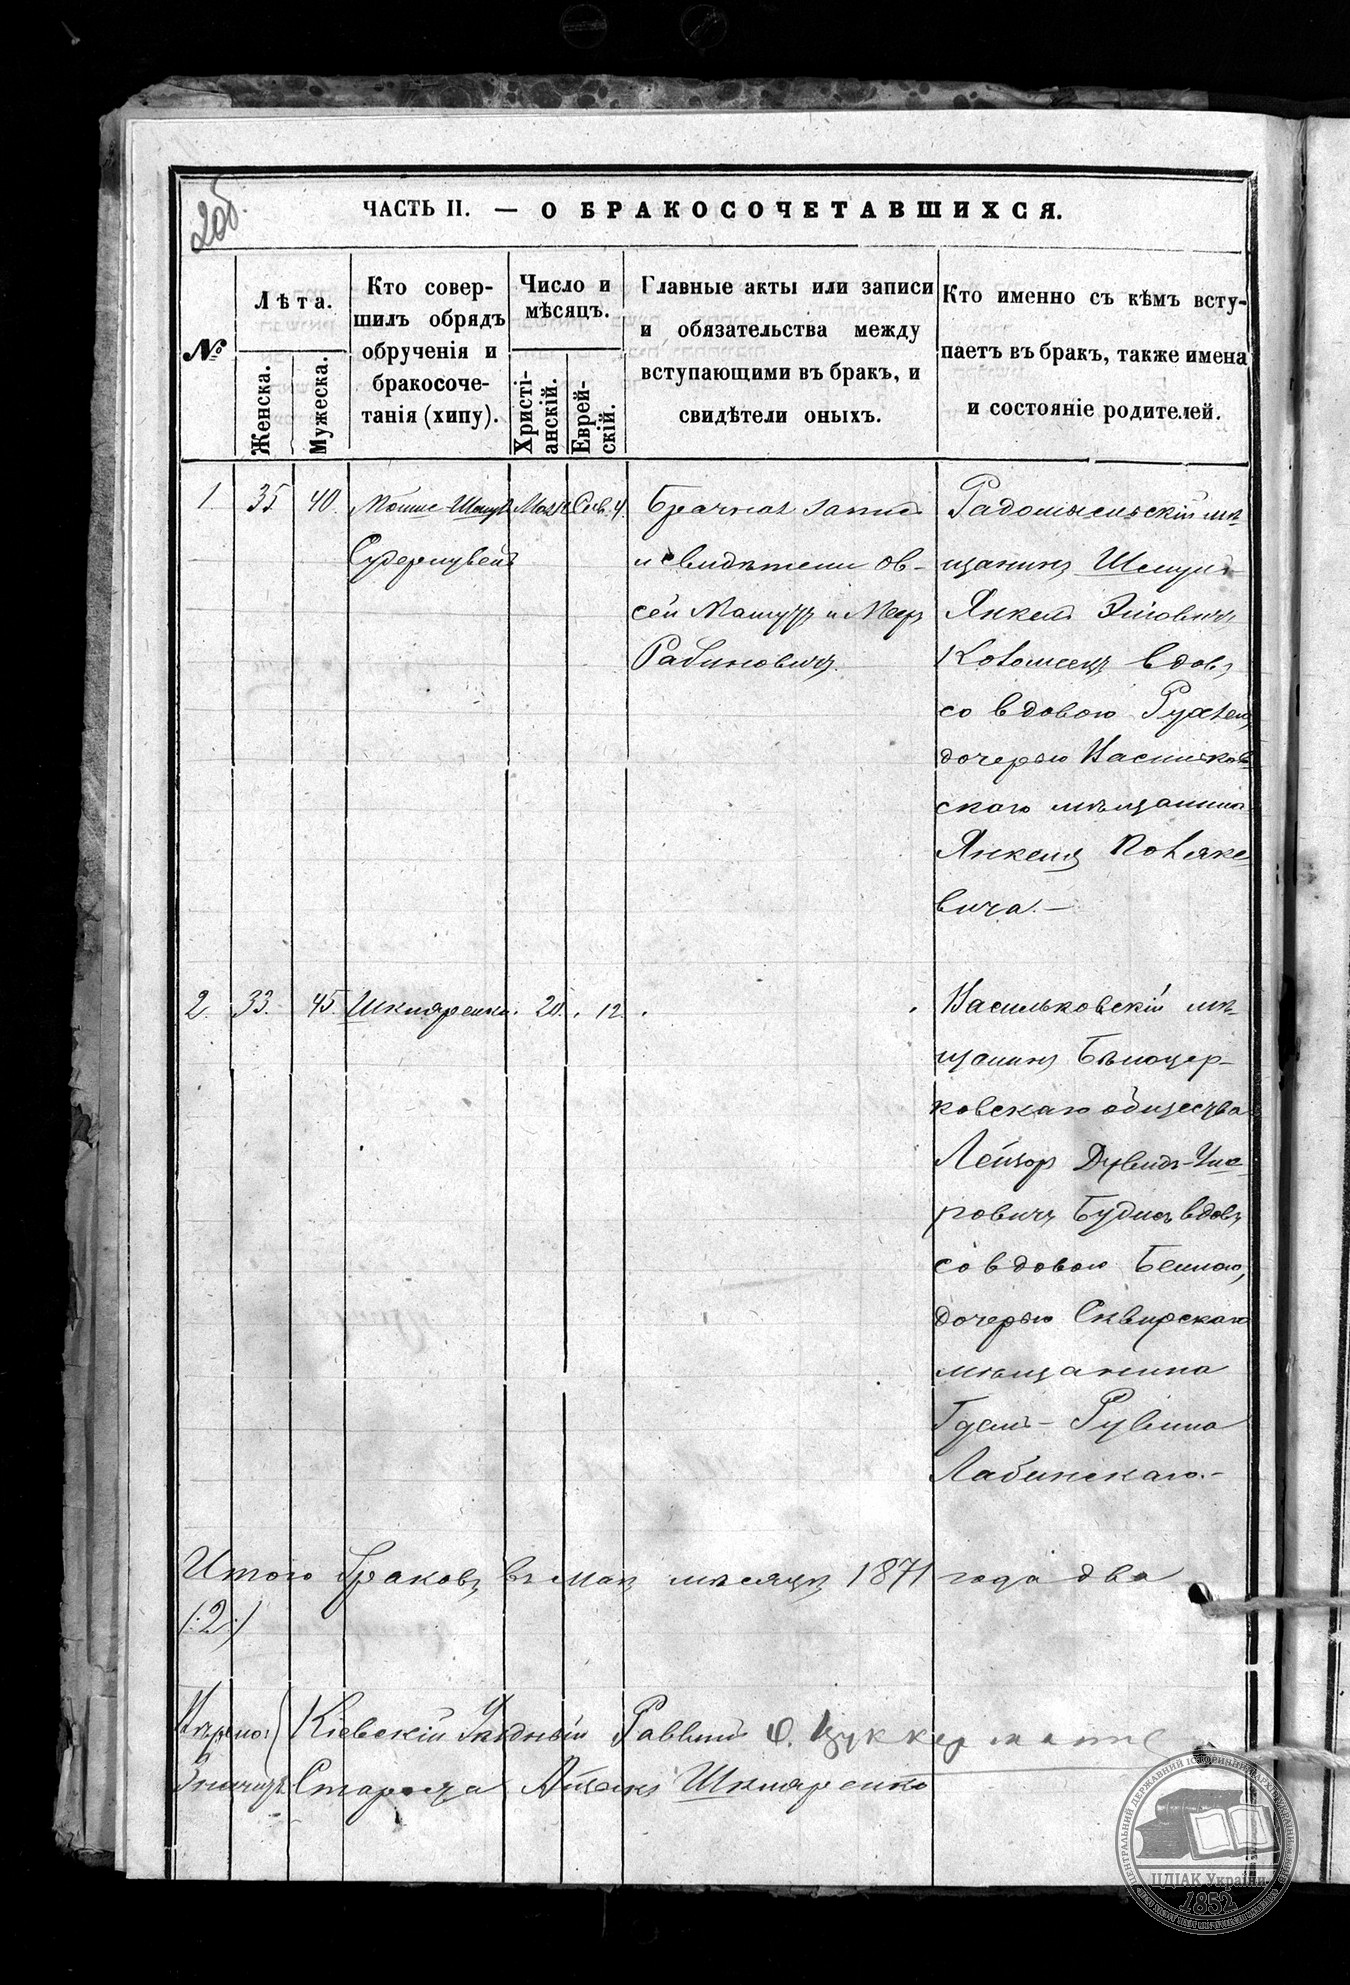 20б.
ЧАСТЬ II. — О БРАКОСОЧЕТАВШИХСЯ.
№
Лѣта.
Женска.
Мужеска.
Кто совер-
шилъ обрядъ
обрученія и
бракосоче-
танія (хипу).
Число и
мѣсяцъ.
Христі-
анскій.
Еврей-
скій.
Главные акты или записи
и обязательства между
вступающими въ бракъ, и
свидѣтели оныхъ.
Кто именно съ кѣмъ всту-
паетъ въ бракъ, также имена
и состояніе родителей.
1
35
40.
Мойше-Шмуль
Мая
Сив. 4.
Брачная запись
и свидѣтели Ов-
сей Машуръ и Меер
Рабиновичъ.
Радомысльскій мѣ-
щанинъ Шмуль
Янкель
Коломеецъ вдовъ
со вдовою Рухлею,
дочерью Васильков-
скаго мѣщанина
Янкеля Поляке-
вича.—
2.
33.
45.
Шкляренко.
20.
12.
Васильковскій мѣ-
щанинъ Бѣлоцер-
ковскаго общества
Лейзор Дувидъ-
ровичъ вдовъ
со вдовою Бейлою,
дочерью Сквирскаго
мѣщанина
Гдаль-Рувина
Лабинскаго.—
Итого браковъ въ маѣ мѣсяцѣ 1871 года два
(:2:)
Кіевскій Уѣздный Раввинъ Цуккерманъ
Староста Шкляренко
ЦЕНТРАЛЬНИЙ ДЕРЖАВНИЙ ІСТОРИЧНИЙ АРХІВ УКРАЇНИ
ЦДІАК України
1852